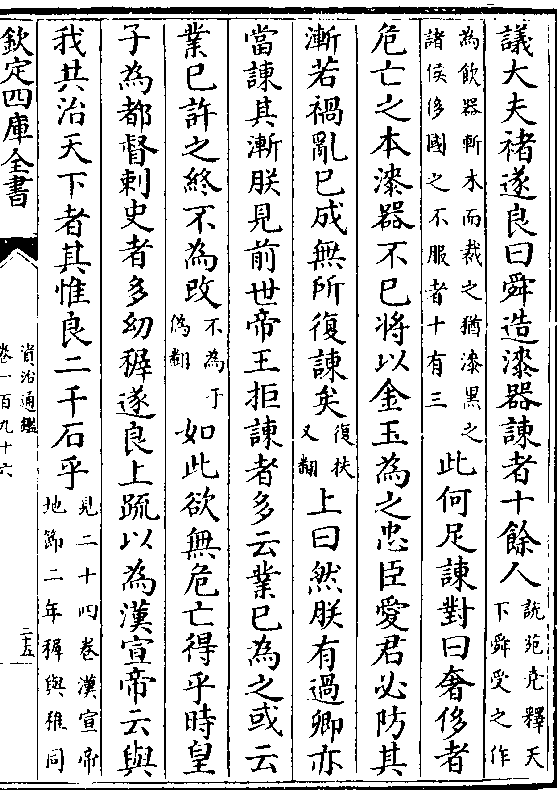 議大夫褚遂良曰舜造漆器諫者十餘人說苑堯釋天下舜受之作
為飲器斬木而裁之猶漆黒之諸侯侈國之不服者十有三此何足諫對曰奢侈者
危亡之本漆器不已將以金玉為之忠臣愛君必防其
漸若禍亂已成無所復諫矣復扶又翻上曰然朕有過卿亦
當諫其漸朕見前世帝王拒諫者多云業已為之或云
業已許之終不為改不為于偽翻如此欲無危亡得乎時皇
子為都督刺史者多幼穉遂良上疏以為漢宣帝云與
我共治天下者其惟良二千石乎見二十四卷漢宣帝地節二年穉與稚同
欽定四庫全書
資治通鑑
卷一百九十六
二十五